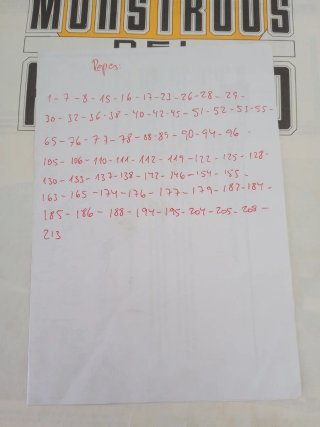 MONSTRUOS
DEL
Repes:
1-7-8-15-16-17-23-26-28-29-
30-32-36-38-40-42-45-51-52-53-55-
65-76-77-78-88-89-90-94-96-
105-106-110-111-112-119-122-125-128-
130-133-137-138-142-146-154-155-
163-165-174-176-177-179-182-184-
185-186-188-194-195-204-205-208-
213